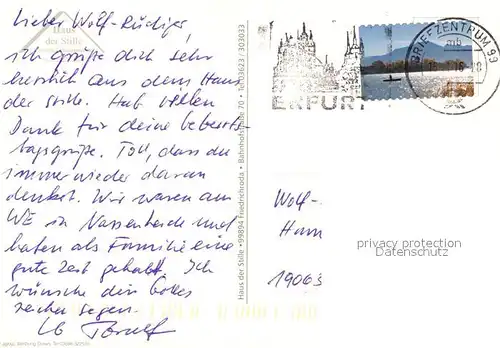 Lieber Wolf-Rüdiger,
ich grüße dich sehr
herzlich aus dem Haus
der Stille. Hab vielen
Dank für deine Geburts-
tagsgrüße. Toll, dass du
immer wieder daran
denkst. Wir waren am
WE in Nassenheide und
haben als Familie eine
gute Zeit gehabt. Ich
wünsche dir Gottes
reichen Segen.
Haus
der Stille
Haus der Stille • 99894 Friedrichroda • Bahnhofstraße 70 • Tel. 03623 / 303033
ERFURT
BRIEFZENTRUM 99
mb
Wolf-
Ham
19063
privacy protection
Datenschutz